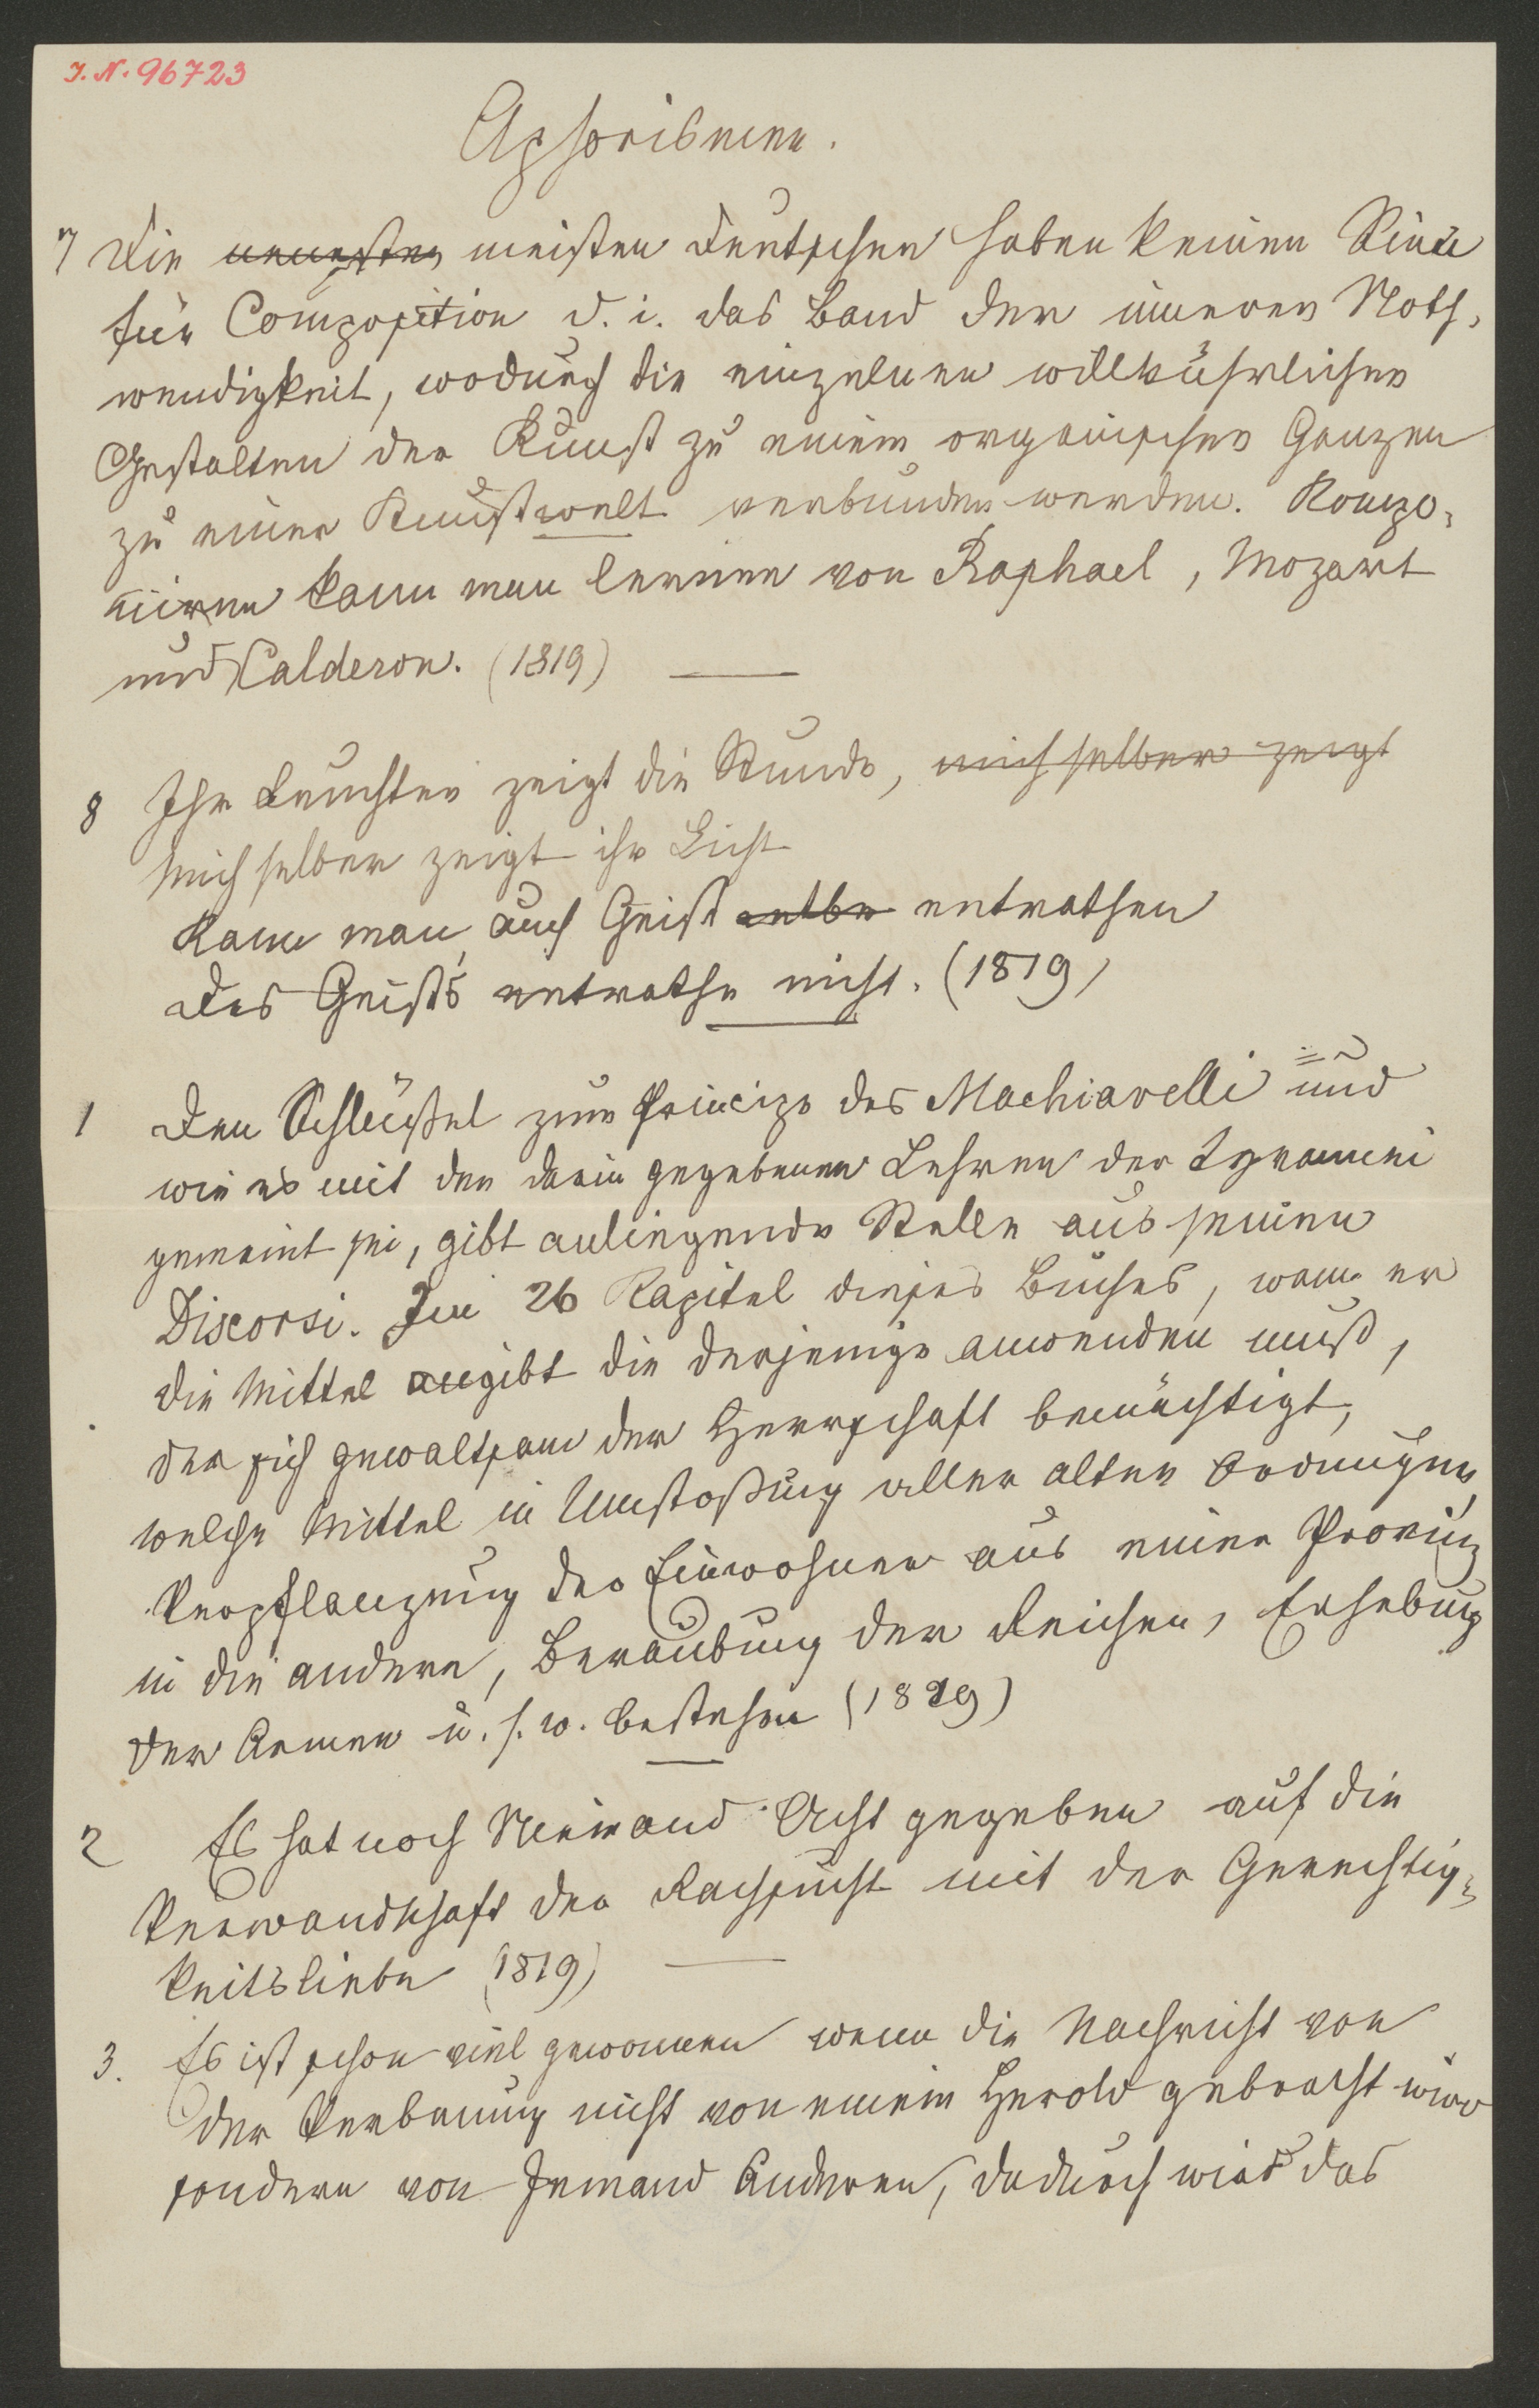 I. N. 96723
Aphorismen.
7 Die neuesten meisten Deutschen haben keinen Sinn
für Composition d. i. das Band der inneren Noth-
wendigkeit, wodurch die einzelnen willkührlichen
Gestalten der Kunst zu einem organischen Ganzen
zu einer Kunstwelt verbunden werden. Kompo-
niren kann man lernen von Raphael, Mozart
und Calderon. (1819)
8 Ihr Leuchten zeigt die Stunde, mich selber zeigt
mich selber zeigt ihr Licht
Kann man auch Geist entbe entrathen
Des Geist's entrathe nicht. (1819)
1 Den Schlüßel zum Principe des Machiavelli und
wie es mit den darin gegebenen Lehren der Tyrannei
gemeint sei, gibt anliegende Stelle aus seinen
Discorsi. Im 26 Kapitel dieses Buches, wann er
die Mittel angibt die derjenige anwenden muß,
der sich gewaltsam der Herrschaft bemächtigt,
welche Mittel in Umstoßung aller alten Ordnungen,
Verpflanzung der Einwohner aus einer Provinz
in die andere, Beraubung der Reichen, Erhebung
der Armen u. s. w. bestehen (1819)
2 Es hat noch Niemand Acht gegeben auf die
Verwandtschaft der Rachsucht mit der Gerechtig-
keitsliebe (1819)
3. Es ist schon viel gewonnen wenn die Nachricht von
der Verbannung nicht von einem Herold gebracht wird
sondern von Jemand Anderen, dadurch wird das